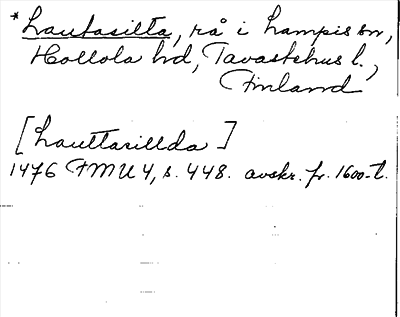 *Lautasilta, rå i Lampis sn,
Hollola hd, Tavastehus l.,
Finland
[Lauttasillda]
1476 FMU 4, s. 448. avskr. fr. 1600-t.